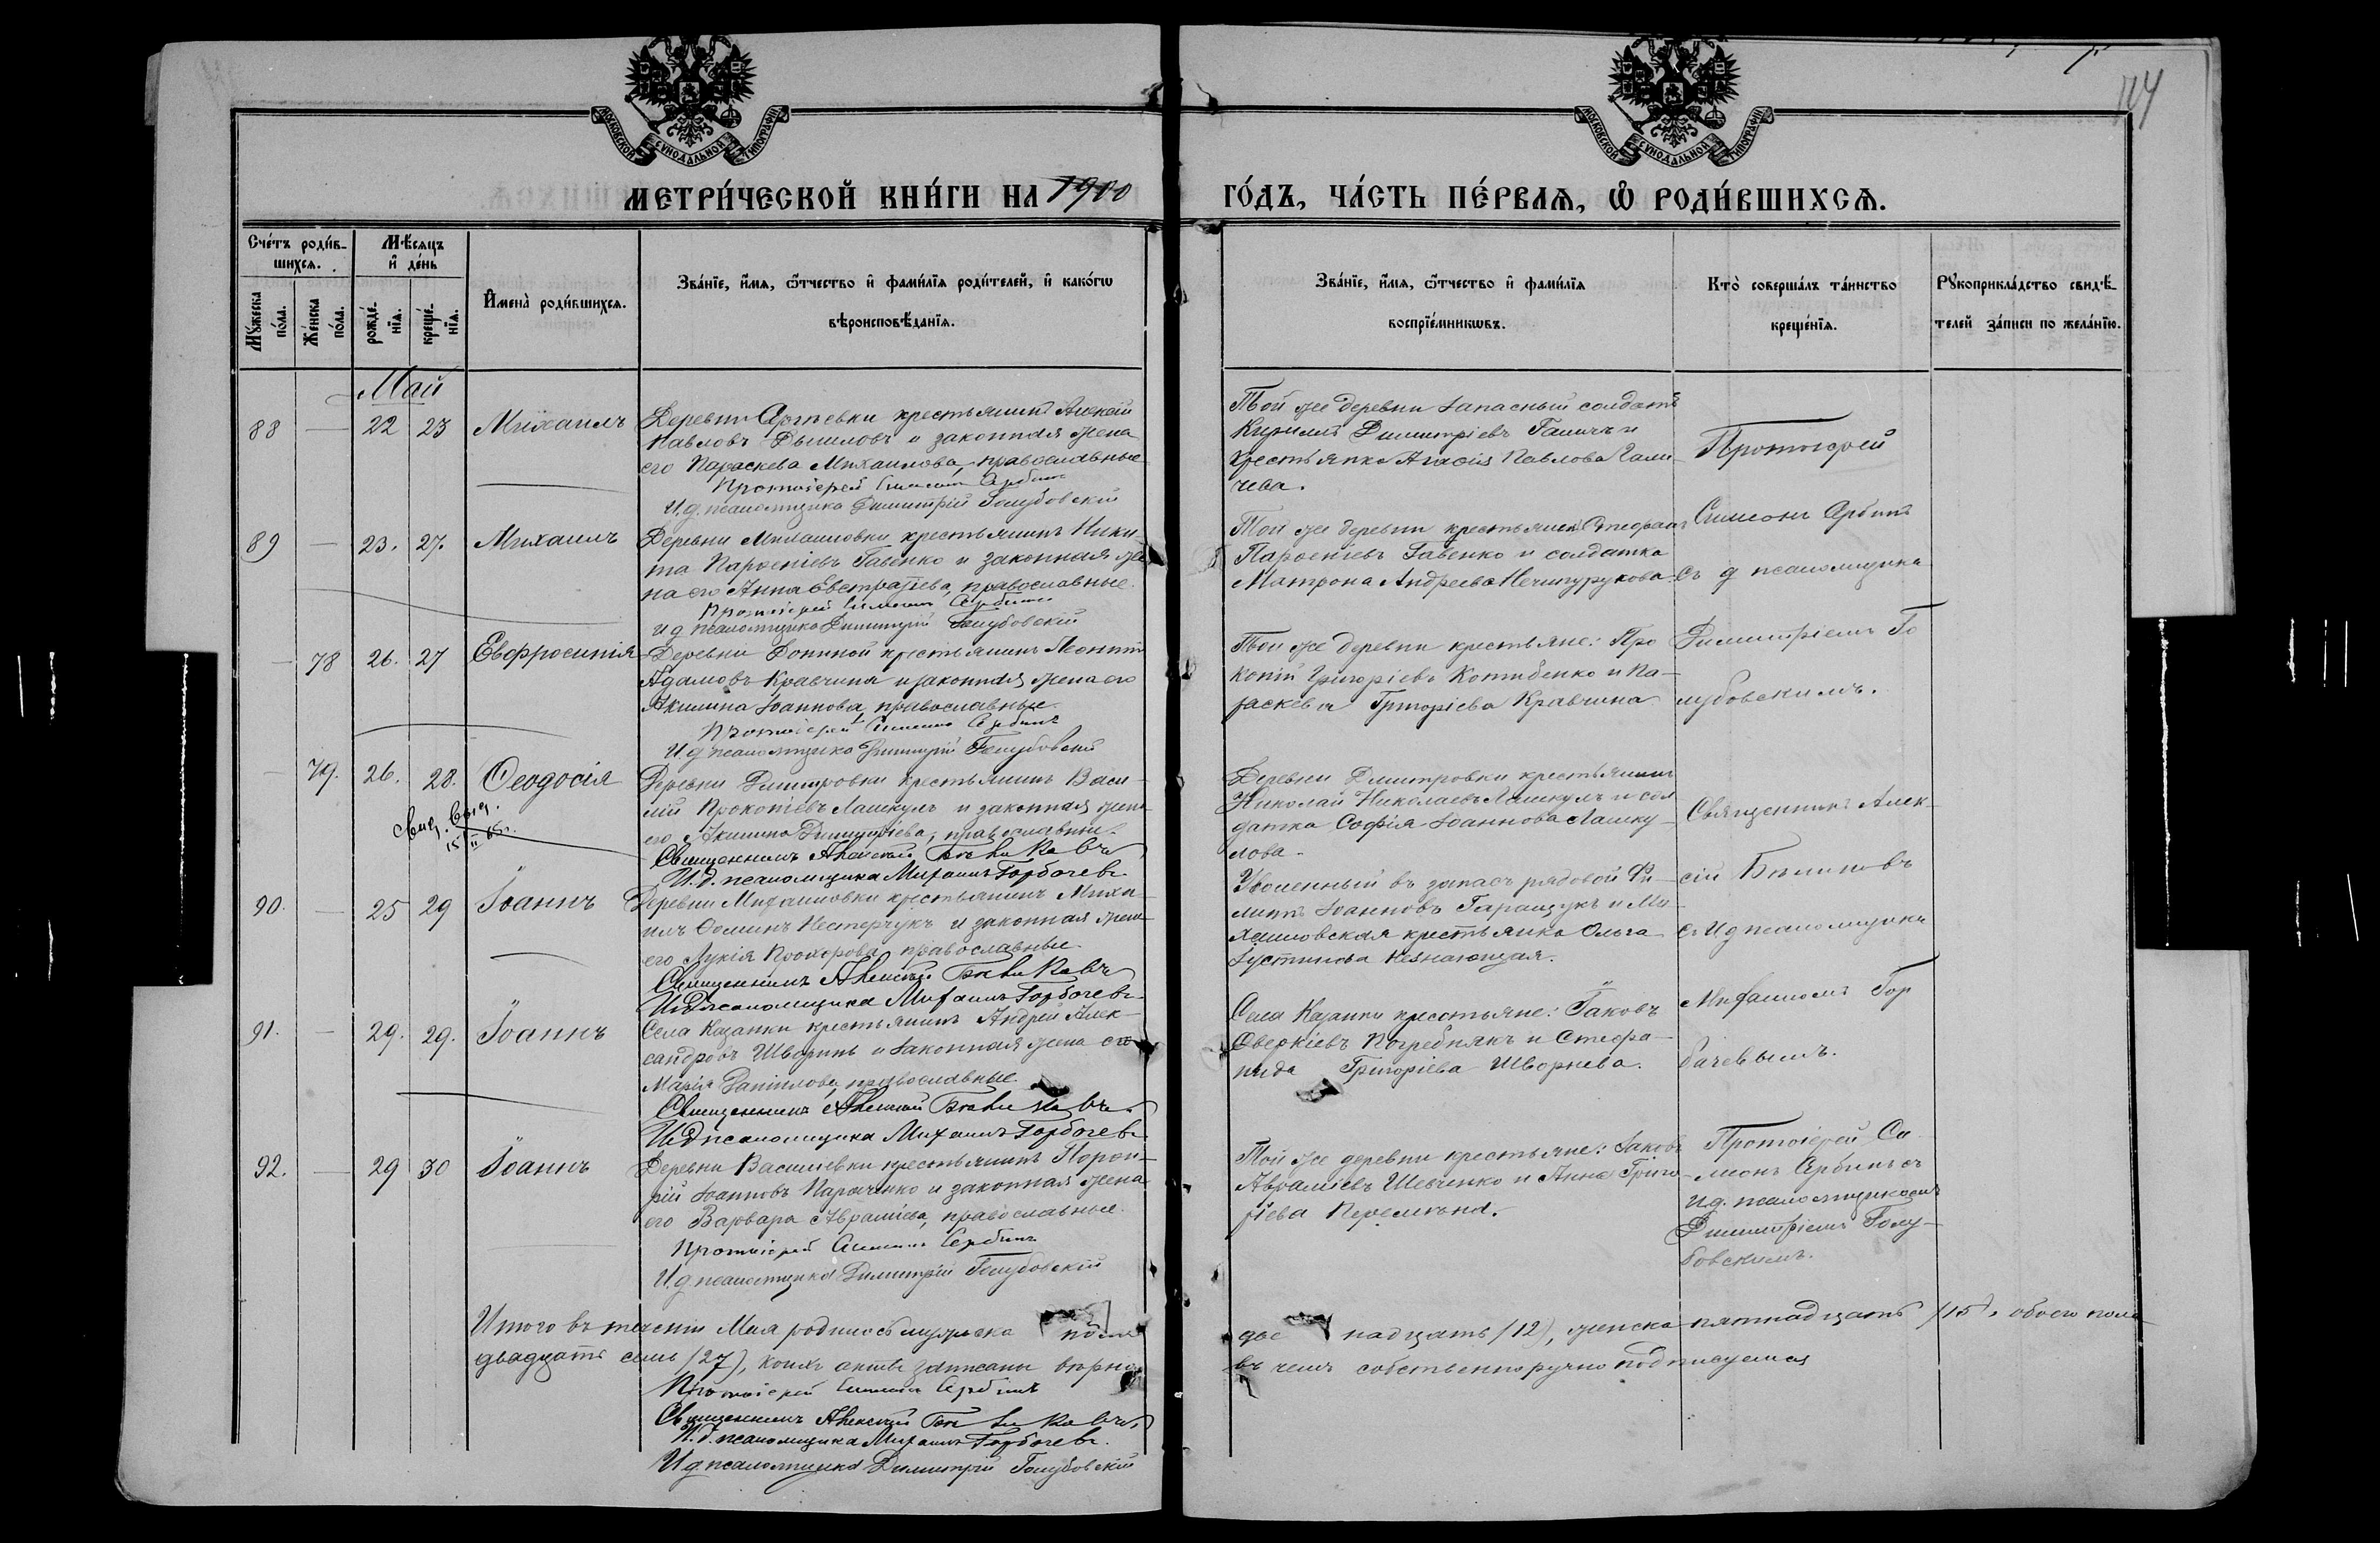 114
МОСКОВСКОЙ СѴНОДАЛЬНОЙ ТИПОГРАФІИ
МОСКОВСКОЙ СѴНОДАЛЬНОЙ ТИПОГРАФІИ
МЕТРИ́ЧЕСКОЙ КНИ́ГИ НА 1900
ГО́ДЪ, ЧА́СТЬ ПЕ́РВАѦ, Ѡ҆ РОДИ́ВШИХСѦ.
Сче́тъ роди́в-
шихсѧ.
Мѣ́сѧцъ
и҆ де́нь
Мꙋ́жеска
по́ла.
Же́нска
по́ла.
рожде́-
нїѧ.
креще́-
нїѧ.
И҆мена̀ роди́вшихсѧ.
Зва́нїе, и҆́мѧ, ѻ҆́тчество и҆ фами́лїѧ роди́телей, и҆ како́гѡ
вѣроисповѣ́данїѧ.
Зва́нїе, и҆́мѧ, ѻ҆́тчество и҆ фами́лїѧ
воспрїе́мникѡвъ.
Кто̀ соверша́лъ та́инство
креще́нїѧ.
Рꙋкоприкла́дство свидѣ́-
телей за́писи по жела́нїю.
Май
88 — 22 23 Михаилъ
Деревни крестьянинъ Алексій
Павловъ и законная жена
его Параскева Михаилова, православные
Протоіерей Симеонъ Сербинъ
И.д. псаломщика Димитрій Голубовскій
Той же деревни запасный солдатъ
Кириллъ Димитріевъ Галичъ и
крестьянка Павлова Гали
чева.
Протоіерей
89 — 23. 27. Михаилъ
Деревни Михаиловки крестьянинъ Ники
та Парѳеніевъ Гавенко и законная же
на его Анна Евстратіева, православные.
Протоіерей Симеонъ Сербинъ
и д псаломщика Димитрій Голубовскій
Той же деревни крестьянинъ Стефанъ
Парѳеніевъ Гавенко и солдатка
Матрона Андреева Нечипурукова.
Симеонъ Сербинъ
съ д псаломщика
— 78 26. 27 Евфросинія
Деревни крестьянинъ Леонтій
Адамовъ Кравчина и законная жена его
Акилина Іоаннова, православные.
Протоіерей Симеонъ Сербинъ
И.д псаломщика Димитрій Голубовскій
Той же деревни крестьяне: Про
копій Григоріевъ и Па-
раскева Григоріева Кравчина
Димитріемъ Го
лубовскимъ.
— 79. 26. 28. Ѳеодосія
Свид. выд.
15/II
Деревни Димитровки крестьянинъ Васи-
лій Прокопіевъ Лашкулъ и законная жена
его Акилина Димитріева, православные.
Священникъ Алексій
И.д. псаломщика Михаилъ Горбачевъ
Деревни Димитровки крестьянинъ
Николай Николаевъ Лашкулъ и сол
датка Софія Іоаннова Лашку-
лова.
Священникъ Алек-
90. — 25 29 Іоаннъ
Деревни Михаиловки крестьянинъ Миха-
илъ Ѳоминъ Нестерчукъ и законная жена
его Лукія Прохорова, православные.
Священникъ Алексій
И.д псаломщика Михаилъ Горбачевъ
Уволенный въ запасъ рядовой Фи-
липпъ Іоанновъ Гаращукъ и Ми-
хаиловская крестьянка Ольга
Іустинова Незнающая.
сій
съ И д псаломщика
91. — 29. 29. Іоаннъ
Села Казанки крестьянинъ Андрей Алек-
сандровъ Шворинъ и законная жена его
Марія Даніилова, православные.
Священникъ Алексій
И.д псаломщика Михаилъ Горбачевъ
Села Казанки крестьяне: Іаковъ
Аверкіевъ Погребнякъ и Стефа-
нида Григоріева Шворнева.
Михаиломъ Гор
бачевымъ.
92. — 29 30 Іоаннъ
Деревни Васильевки крестьянинъ Порфи-
рій Іоанновъ и законная жена
его Варвара Авраміева, православные.
Протоіерей Симеонъ Сербинъ
И.д псаломщика Димитрій Голубовскій
Той же деревни крестьяне: Іаковъ
Авраміевъ Шевченко и Анна Григо-
рієва
Протоіерей Си-
меонъ Сербинъ съ
и д. псаломщикомъ
Димитріемъ Голу-
бовскимъ.
Итого въ теченіи Мая родилось мужеска пола
две надцать (12), женска пятнадцать (15), обоего пола
двадцать семь (27), коихъ акты записаны вѣрно
въ чемъ собственноручно подписуемся
Протоіерей Симеонъ Сербинъ
Священникъ Алексій
И.д. псаломщика Михаилъ Горбачевъ.
И д псаломщика Димитрій Голубовскій